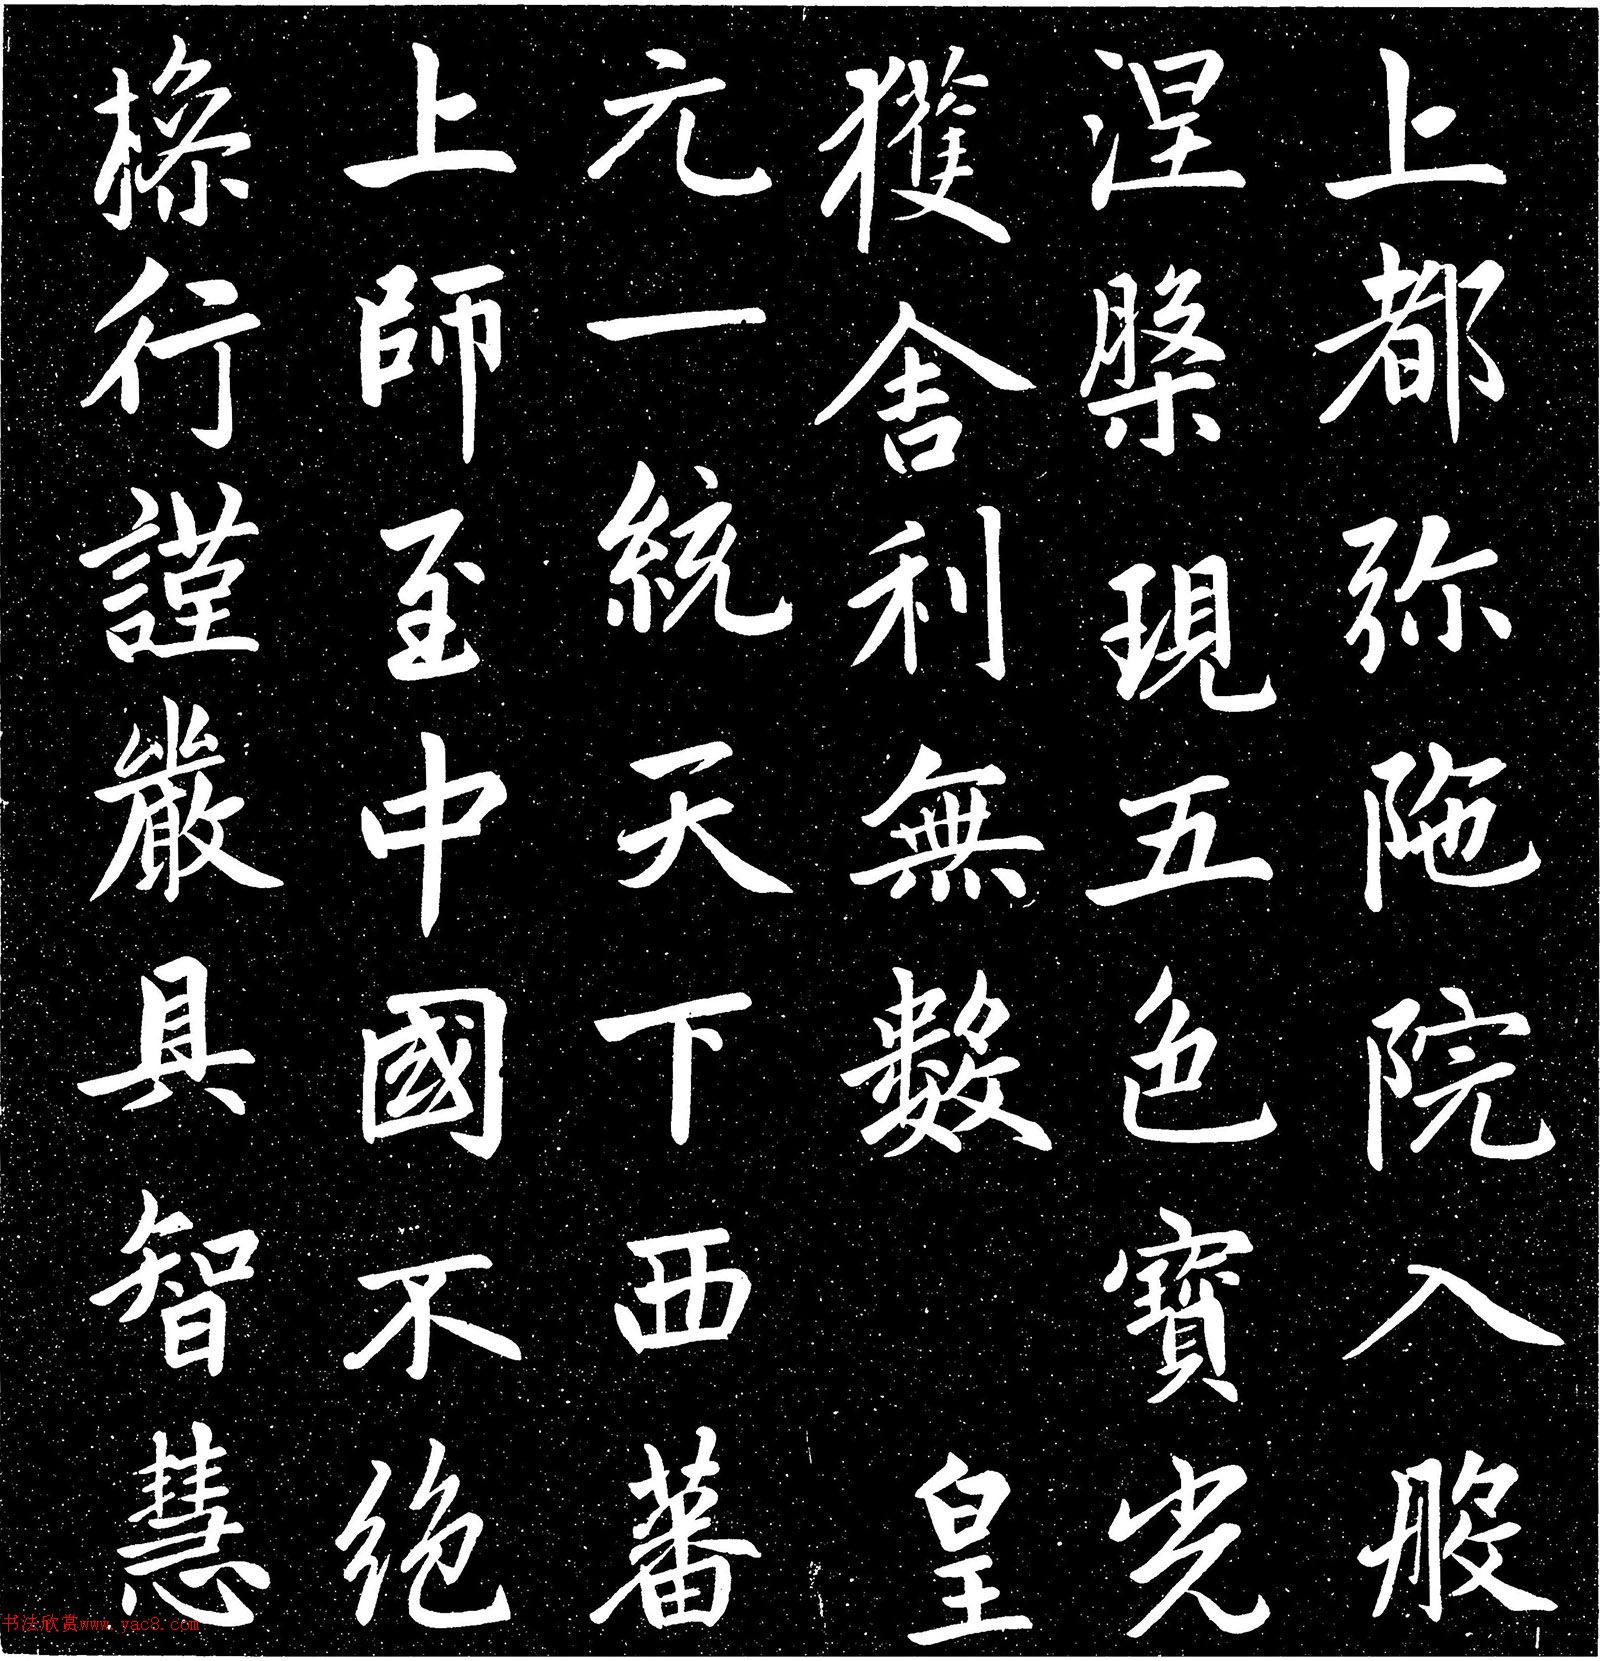 上都弥陁院入般
涅槃現五色寶光
獲舍利無數 皇
元一統天下西蕃
上師至中國不絶
操行謹嚴具智慧
书法欣赏www.yac8.com